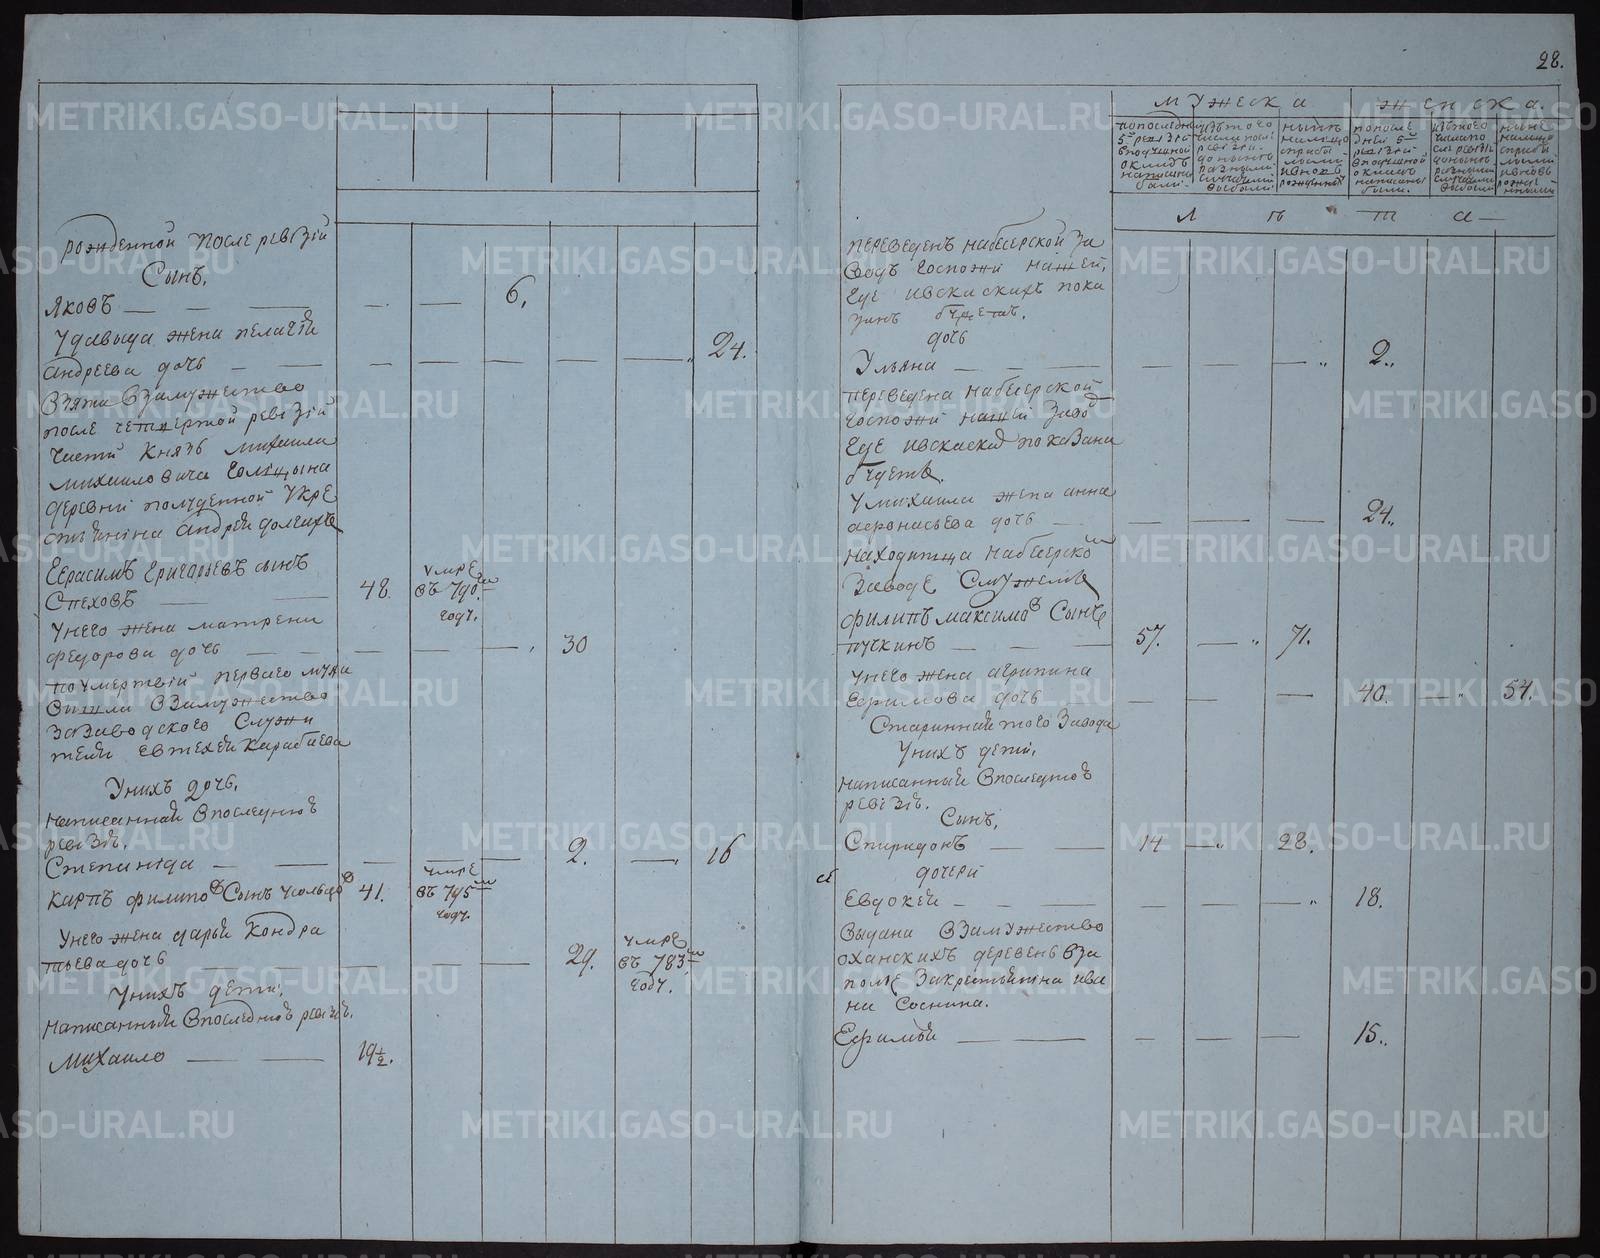 рожденной после ревизiи
Сынъ,
Яковъ — — — — — 6,
У давыда жена пелагiя
андреева дочь — — — — — — — 24.
взята взамужество
после четвертой ревизiи
части Князь михаила
михаиловича Голицына
деревни полуденной
андрея
Герасимъ Григорьевъ сынъ
Спеховъ — — 48. умре въ 790м году.
Унего жена матрена
федорова дочь — — — — 30
поумертвiи перваго мужа
вышла взамужество
зазаводского служи
теля евтехея Карабаева
Унихъ дочь,
написанная впоследнюю
ревизiю,
Степанида — — — — — 2. — 16
Карпъ филиповъ Сынъ 41. умре въ 795м году.
Унего жена дарья Кондра
тьева дочь — — — — 29. умре въ 783м году.
Унихъ дети,
написанныя впоследнюю ревизiю.
Михаило — — 19 1/2.
28.
мужеска женска.
попоследней
5й ревизiи
вподушной
окладъ
написаны
были.
изътого
числа после
ревизiи
доныне
разными
случаями
выбыли
ныне
налицо
списано
с прибылыми
ивновь
рожденными
попосле
дней 5й
ревизiи
вподушной
окладъ
написаны
были.
изътого
числа по
сле ревизiи
доныне
разными
случаями
выбыли
ныне
налицо
с прибы
лыми
ивновь
рожде
нными
л е т а
переведенъ набисерской за
водъ госпожи нашей,
где ивсказкахъ пока
занъ будетъ.
дочь
Ульяна — — — — — 2.
переведена набисерской
госпожи нашей завод
где ивсказкахъ показана
будетъ.
Умихаила жена анна
афонасьева дочь — — — — 24.
находитца набисерском
заводе
филипъ максимовъ Сынъ
пучкинъ — — — 57. — 71.
Унего жена агрипина
Ефимова дочь — — — 40. — 54.
Стариннаяя того завода
Унихъ дети,
написанныя впоследнюю
ревизiю.
Сынъ,
Спиридонъ — — 14 — 28.
дочери
Евдокея — — — — — — 18.
выдана взамужество
оханскихъ деревень вза
полье закрестьянина ива
на Соснина.
Ефимья — — — — — 15.